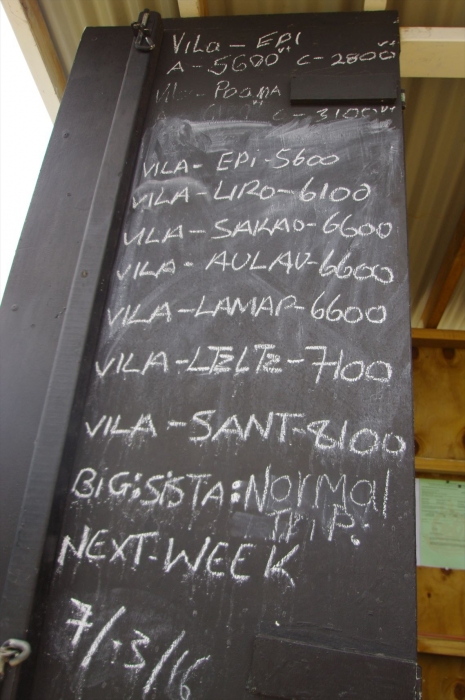 VILA - EPI
A - 5600 VT C - 2800 VT
VILA - PAAMA
C - 3100 VT
VILA - EPI - 5600
VILA - LIRO - 6100
VILA - SAKAO - 6600
VILA - AULAU - 6600
VILA - LAMAP - 6600
VILA - LTZLTZ - 7100
VILA - SANT - 8100
BIG:SISTA:NORMAL
TRIP:
NEXT-WEEK
7/.3/16